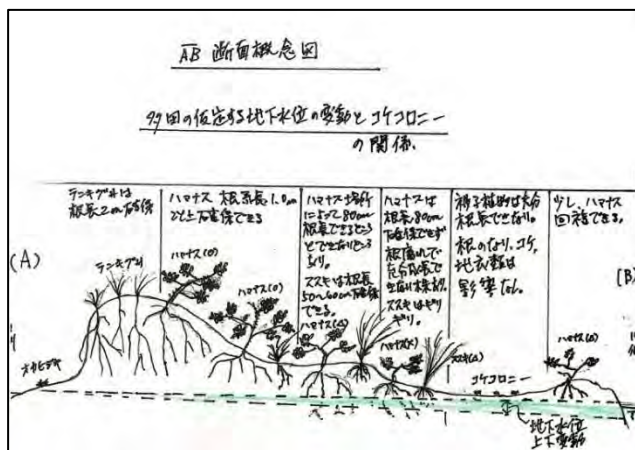 AB 断面概念図
今回の仮定する地下水位の変動とコケコロニー
の関係
テンキグサは
根長2m確保
ハマナス 根系長1.0m
以上確保できる
ハマナス場所
によって80cm
根長できるところ
とできないところ
あり。
ススキは根長
50~60cm確保
できる。
ハマナスは
根長80cm
確保できず
根腐れで
充分成長で
きない株あり。
ススキはぎり
ぎり。
種子植物は充分
根長できない。
根のない、コケ、
地衣類は
影響なし。
少し、ハマナス
回復できる。
(A)
(B)
テンキグサ
ハマナス(○)
ハマナス(○)
ハマナス(△)
ハマナス(×)
ススキ(△)
コケコロニー
ハマナス(△)
オカヒジキ
地下水位
上下変動